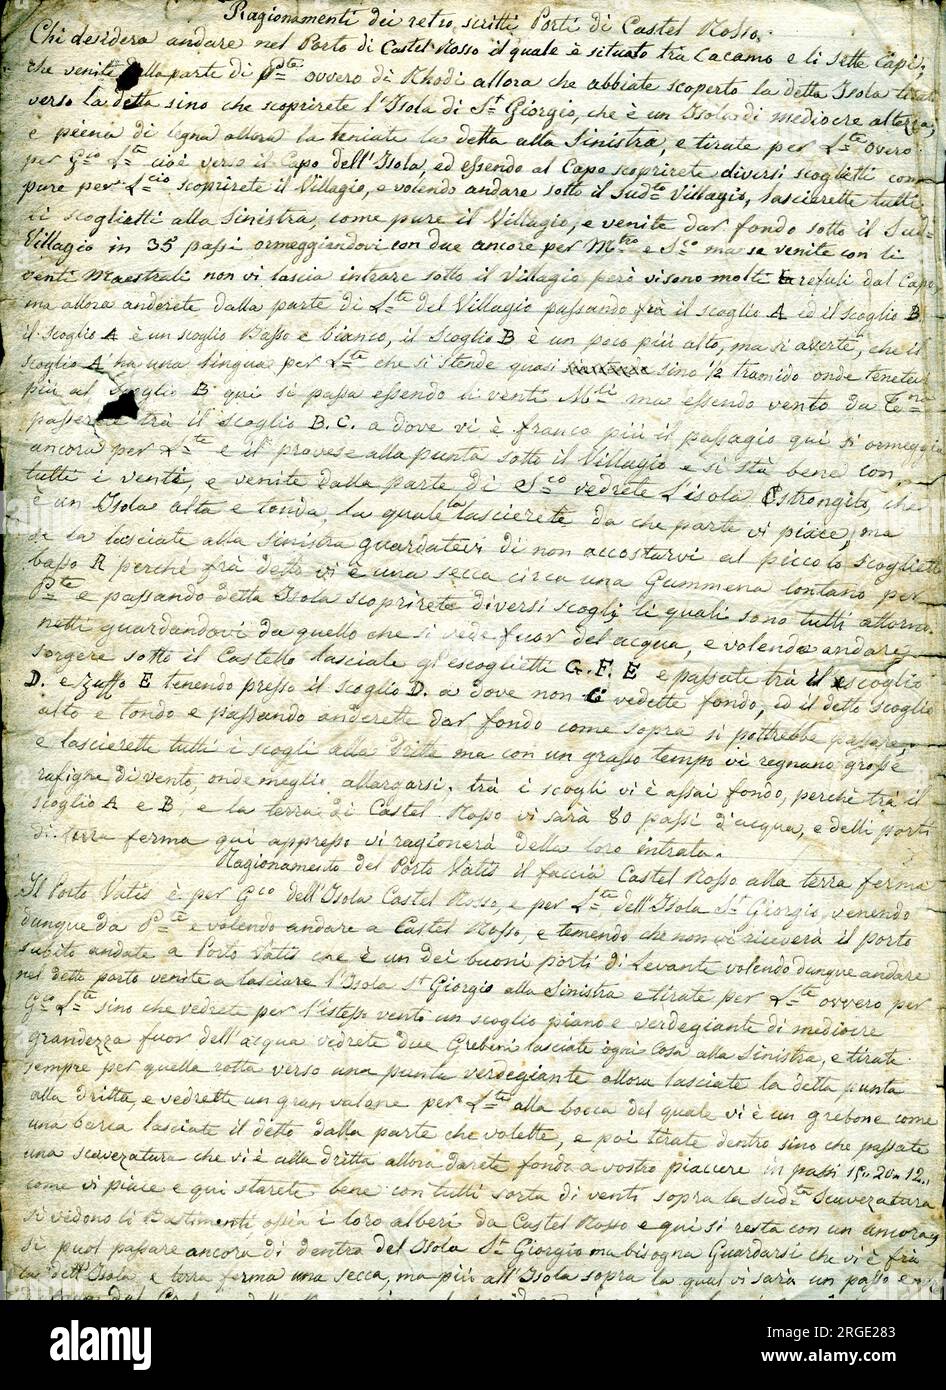 Ragionamenti dei retro,scritti Porti di Castel Rosso.
Chi desidera andare nel Porto di Castel Rosso il quale è situato trà Cacamo e li sette Capi,
che venite dalla parte di Pte ovvero di Rhodi allora che abbiate scoperto la detta Isola tirate
verso la detta sino che scoprirete l'Isola di St Giorgio, che è un Isola di mediocre altezza,
e piena di legna allora la teniate la detta alla Sinistra, e tirate per Lte overo
per Gco Lte cioè verso il Capo dell'Isola, ed essendo al Capo scoprirete diversi scoglietti com
pure per Lcio scoprirete il Villagio, e volendo andare sotto il Sudto Villagio, lascierette tutti
li scoglietti alla Sinistra, come pure il Villagio, e venite dar fondo sotto il Sud=
Villagio in 35 passi ormeggiendovi con due ancore per Mtro e Sco ma se venite con li
venti Maestrali non vi lascia intrare sotto il Villagio però visono molti refuli dal Capo
ma allora anderete dalla parte di Lte del Villagio passando frà il scoglio A ed il scoglio B
il scoglio A è un scoglio Basso e bianco, il Scoglio B è un poco più alto, ma si averte, che il
scoglio A ha una lingua per Lte che si stende quasi sino 1/2 tramido onde tenetevi
più al Scoglio B qui si passa essendo li venti Mtli ma essendo vento da
passerete trà il scoglio B.C. a dove vi è franco più il passagio qui si ormeggia
ancora per Lte e il provese alla punta sotto il Villagio e si stà bene con
tutti i venti, e venite dalla parte di Sco vedrete L'isola Strongilo, che
è un Isola alta e tonda, la quale la lascierete da che parte vi piace, ma
se la lasciate alla Sinistra guardatevi di non accostarvi al piccolo scoglietto
basso R perche frà detto vi è una secca circa una Gummena lontano per
Pte e passando detta Isola scoprirete diversi scogli li quali sono tutti attorno
netti guardandovi da quello che si vede fuor del acqua, e volendo andare
sorgere sotto il Castello lasciate gl'escoglietti G.F.E e passate trà il scoglio
D. e Zuffo E tenendo presso il scoglio D. a dove non vedette fondo, ed il detto scoglio
alto e tondo e passando anderette dar fondo come sopra si pottrebbe passare,
e lascierette tutti i scogli alla dritta ma con un grosso tempo vi regnano grosse
rafighe di vento, onde meglio allargarsi, trà i scogli vi è assai fondo, perchè trà il
scoglio A e B, e la terra di Castel Rosso vi sarà 80 passi d'acqua, e delli porti
di terra ferma qui appresso vi ragionerà della loro intrata.
Ragionamento del Porto Vatis il faccia Castel Rosso alla terra ferma
Il Porto Vatis è per Gco dell'Isola Castel Rosso, e per Lte dell'Isola St Giorgio, venendo
dunque da Pte e volendo andare a Castel Rosso, e temendo che non vi riceverà il porto
subito andate a Porto Vatis che è un dei buoni porti di Levante volendo dunque andare
nel detto porto venite a lasciare l'Isola St Giorgio alla Sinistra e tirate per Lte ovvero per
Gco Lte sino che vedrete per l'istesso vento un scoglio piano e verdegiante di mediocre
grandezza fuor dell'acqua vedrete due Grebeni lasciate ogni Cosa alla Sinistra, e tirate
sempre per quella rotta verso una punta versegiante allora lasciate la detta punta
alla dritta, e vedrette un gran valone per Lte alla bocca del quale vi è un grebone come
una barca lasciate il detto dalla parte che volette, e poi tirate dentro sino che passate
una scavezatura che vi è alla dritta allora darete fondo a vostro piaccere in passi 15" 20" 12"
come vi piace e qui starete bene con tutti sorta di venti sopra la sudta Scavezatura
si vedono li Bastimenti, ossia i loro alberi da Castel Rosso e qui si resta con un ancora,
si puol passare ancora di dentro del Isola St Giorgio ma bisogna Guardarsi che vi è frà
la dett'Isola, e terra ferma una secca, ma più all'Isola sopra la qual vi sarà un passo e